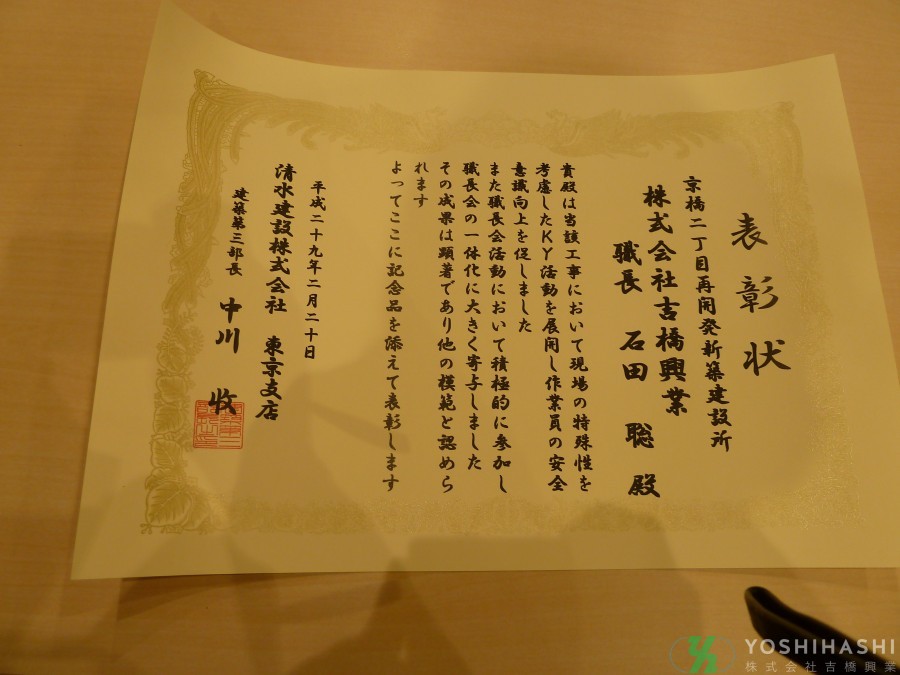 表彰状
京橋二丁目再開発新築建設所
株式会社吉橋興業
職長 石田 聡 殿
貴殿は当該工事において現場の特殊性を
考慮したKY活動を展開し作業員の安全
意識向上を促しました
また職長会活動において積極的に参加し
職長会の一体化に大きく寄与しました
その成果は顕著であり他の模範と認めら
れます
よってここに記念品を添えて表彰します
平成二十九年二月二十日
清水建設株式会社 東京支店
建築第三部長 中川 收
YOSHIHASHI
株式会社吉橋興業